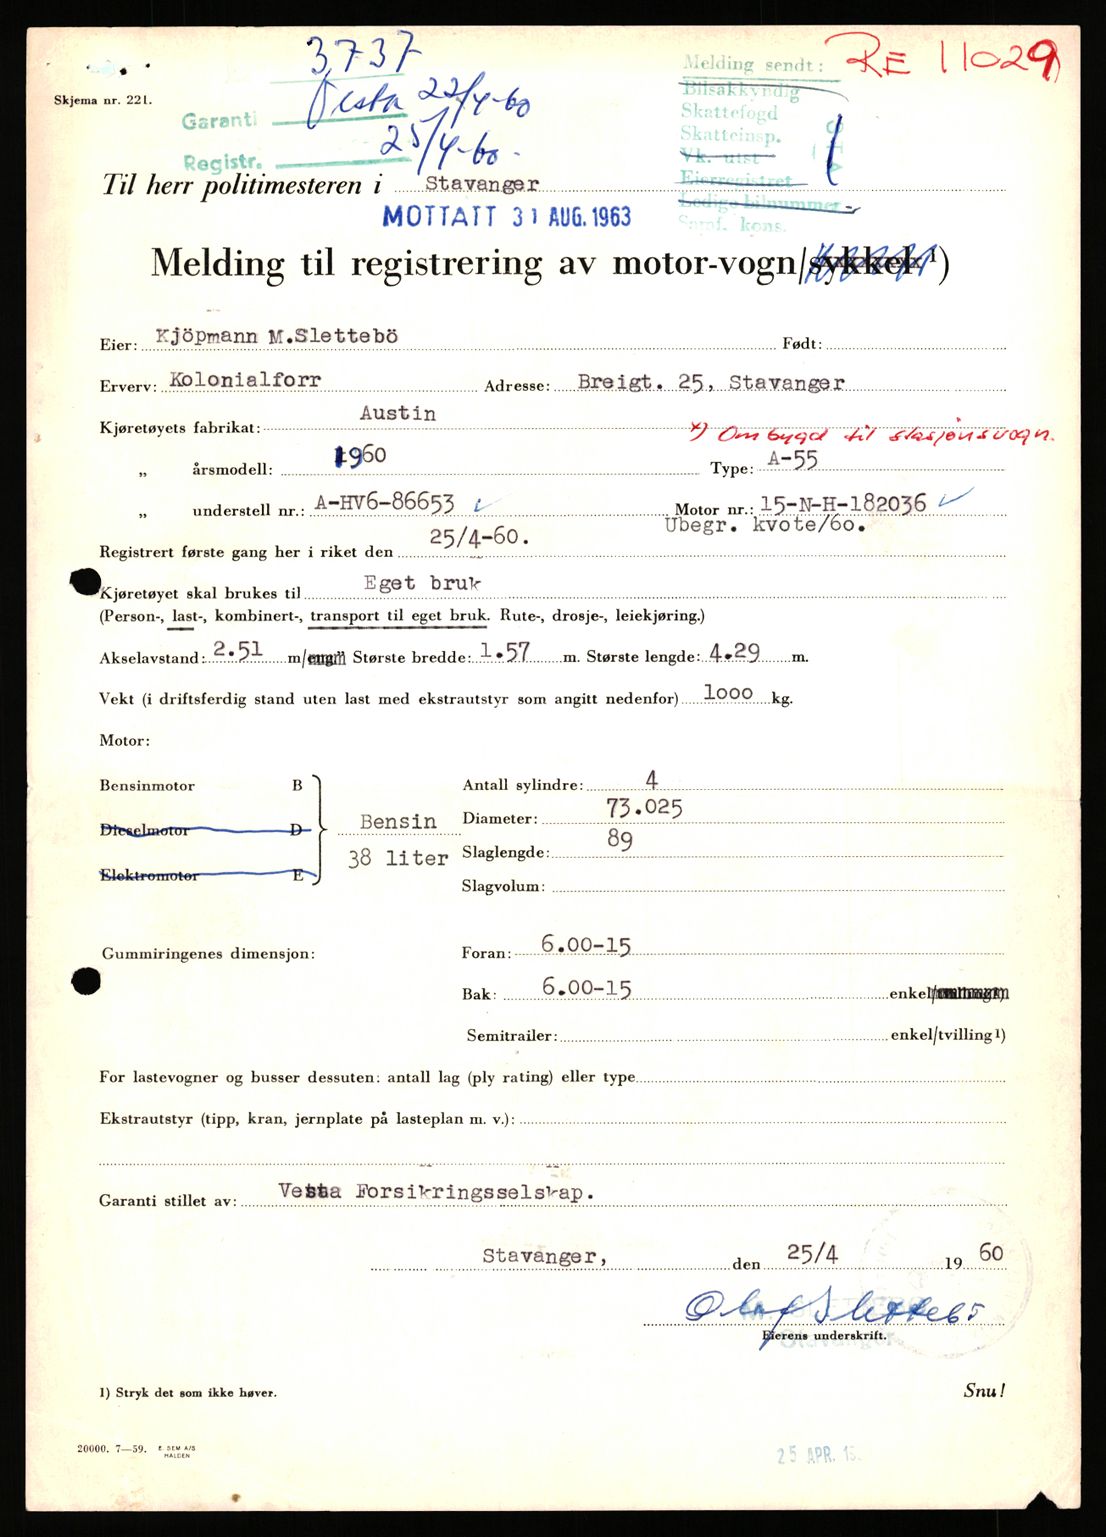 3737
RE 11029
Melding sendt:
Skjema nr. 221.
Garanti Vesta 22/4-60
Bilsakkyndig
Skattefogd
Skatteinsp.
Registr. 25/4-60.
Vk. utst
Eierregistret
Til herr politimesteren i Stavanger
Ledige bilnummer
MOTTATT 31 AUG. 1963
Saml. kons.
Melding til registrering av motor-vogn/sykkel 1)
Eier: Kjöpmann M.Slettebö Født:
Erverv: Kolonialforr Adresse: Breigt. 25, Stavanger
Kjøretøyets fabrikat: Austin
x) Ombygd til stasjonsvogn.
„ årsmodell: 1960 Type: A-55
„ understell nr.: A-HV6-86653 Motor nr.: 15-N-H-182036
Ubegr. kvote/60.
Registrert første gang her i riket den 25/4-60.
Kjøretøyet skal brukes til Eget bruk
(Person-, last-, kombinert-, transport til eget bruk. Rute-, drosje-, leiekjøring.)
Akselavstand: 2.51 m/ Største bredde: 1.57 m. Største lengde: 4.29 m.
Vekt (i driftsferdig stand uten last med ekstrautstyr som angitt nedenfor) 1000 kg.
Motor:
Bensinmotor B
Antall sylindre: 4
Dieselmotor D
Bensin
Diameter: 73.025
38 liter
Slaglengde: 89
Elektromotor E
Slagvolum:
Gummiringenes dimensjon: Foran: 6.00-15
Bak: 6.00-15 enkel/
Semitrailer: enkel/tvilling 1)
For lastevogner og busser dessuten: antall lag (ply rating) eller type
Ekstrautstyr (tipp, kran, jernplate på lasteplan m. v.):
Garanti stillet av: Vesta Forsikringsselskap.
Stavanger, den 25/4 19 60
Olaf Slettebö
Eierens underskrift.
1) Stryk det som ikke høver.
Snu!
20000. 7—59. E. SEM A/S
HALDEN
25 APR. 19